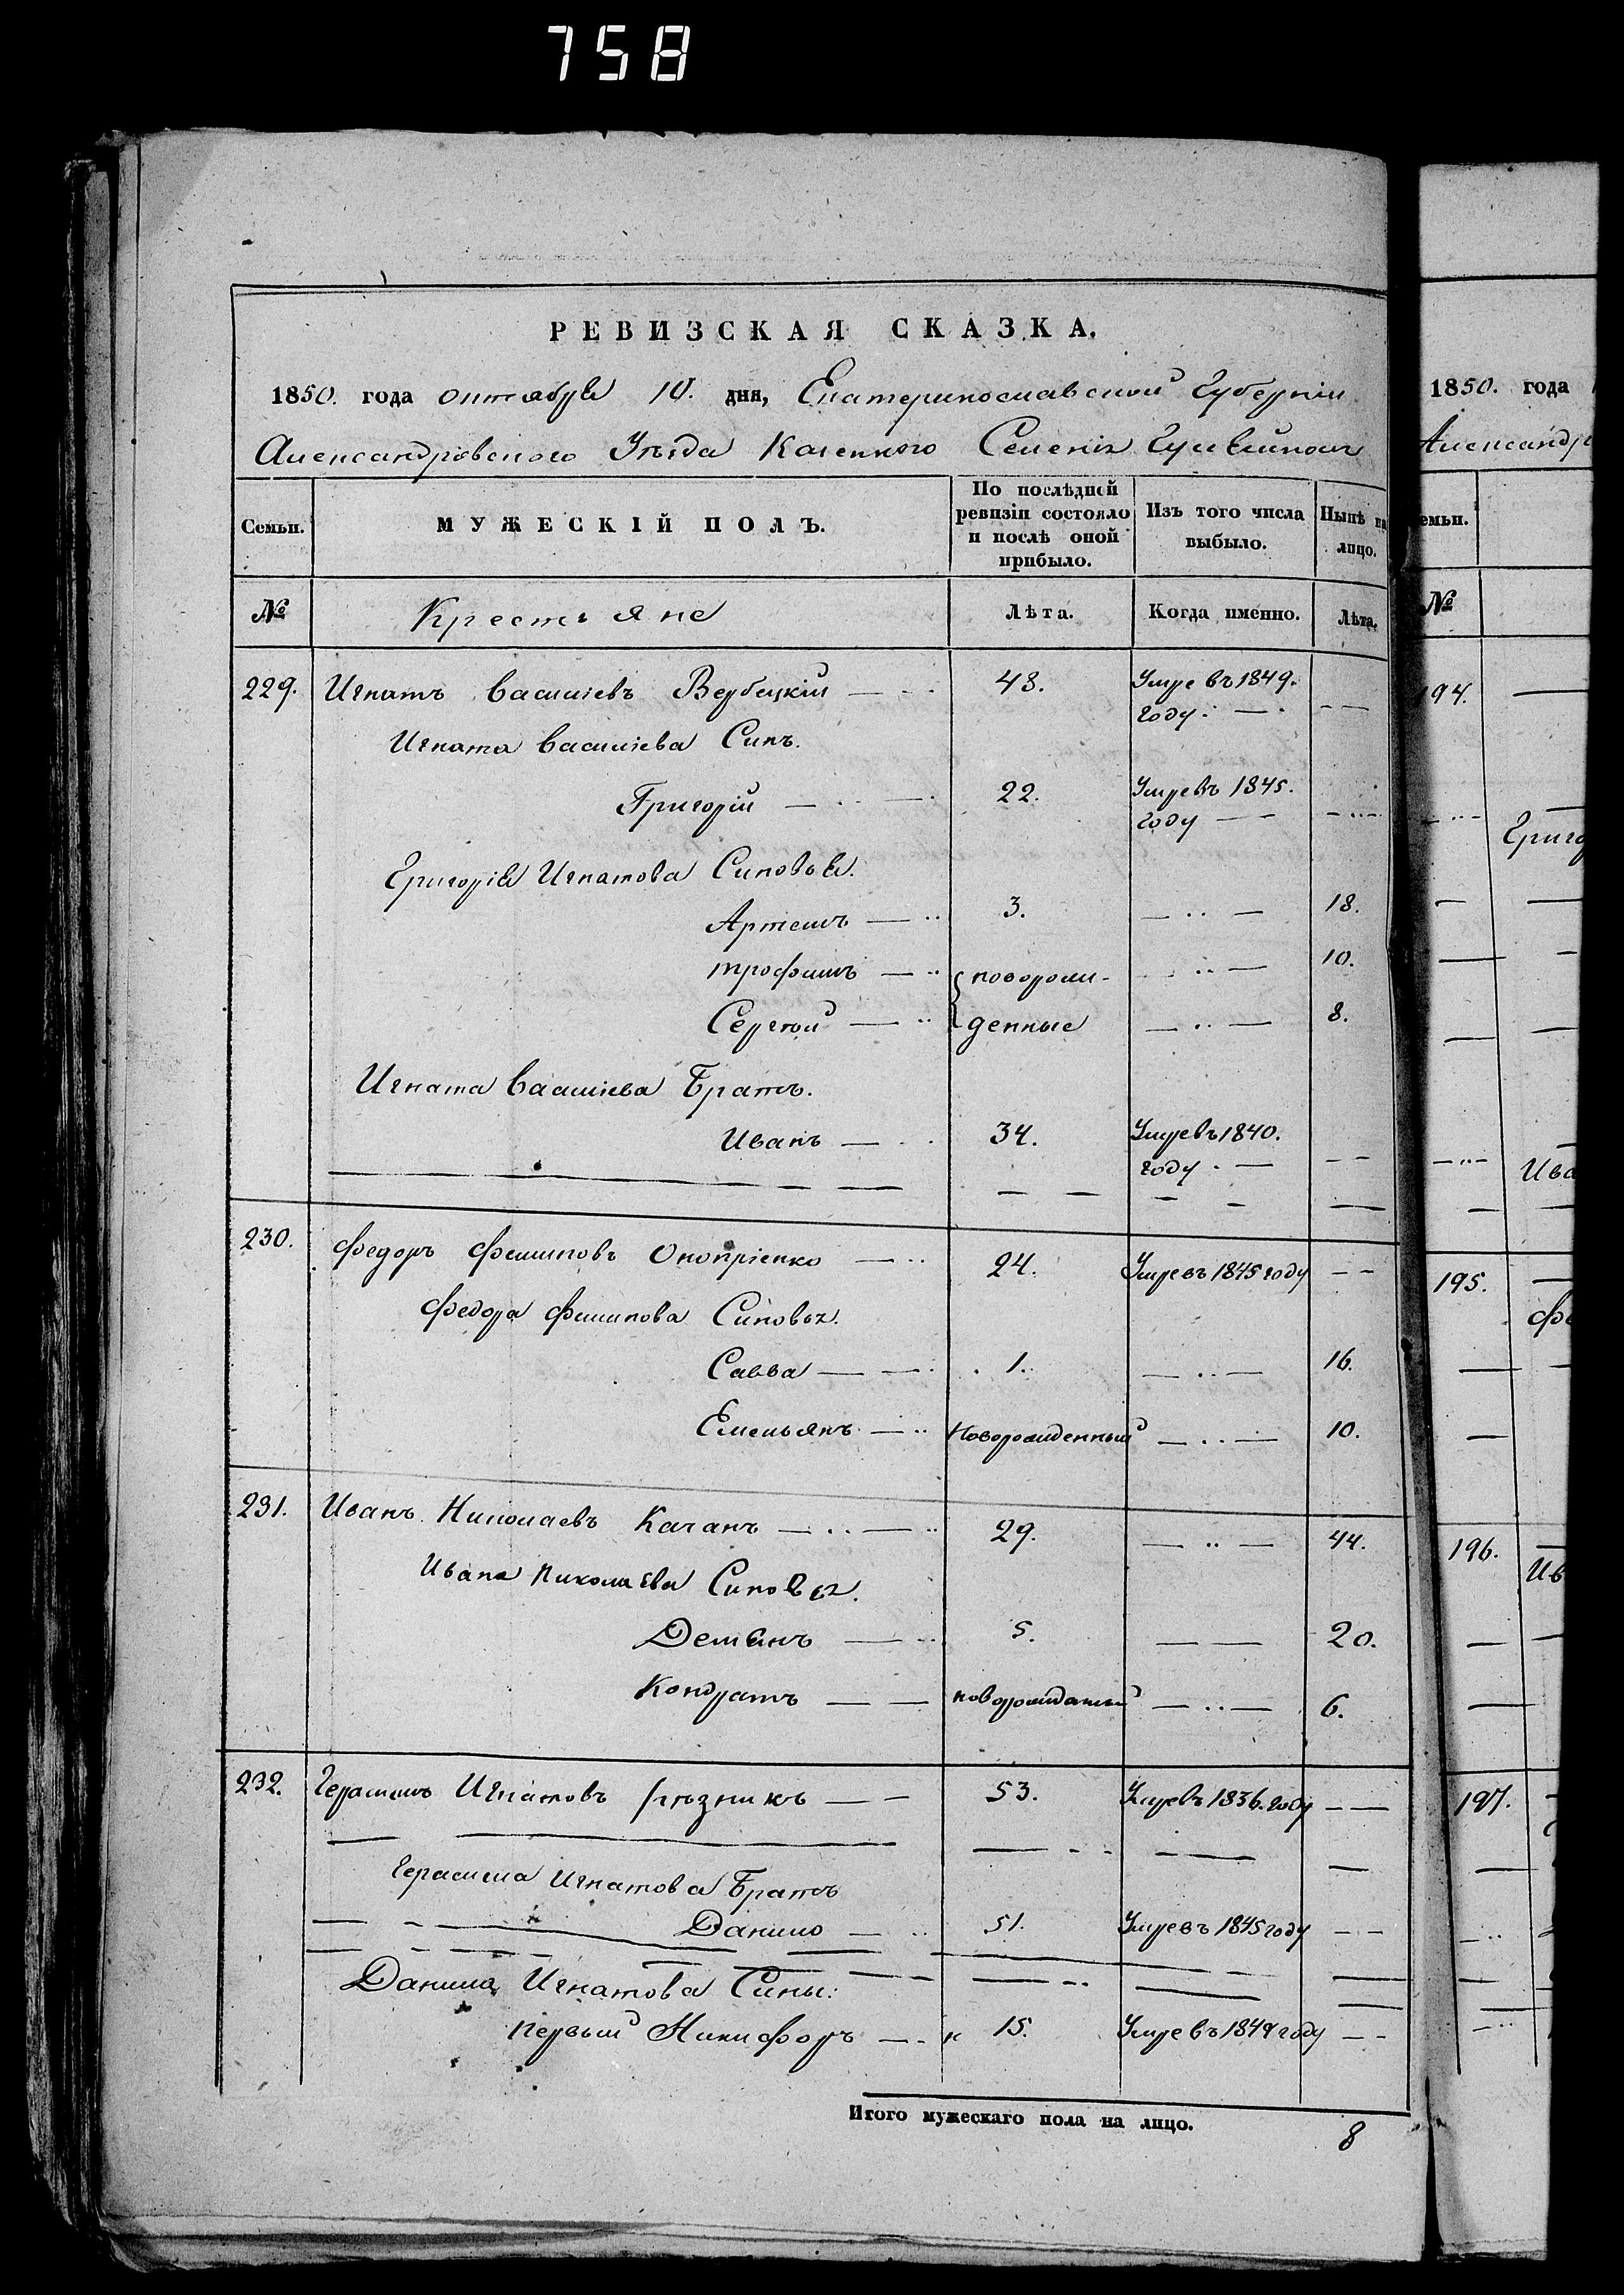 758
РЕВИЗСКАЯ СКАЗКА.
1850. года октября 10. дня, Екатеринославской Губернiи
Александровскаго Уѣзда Казенного Селенiя
Семьи.
МУЖЕСКIЙ ПОЛЪ.
По послѣдней ревизiи состояло и послѣ оной прибыло.
Изъ того числа выбыло.
Нынѣ на лицо.
№ Крестьяне Лѣта. Когда именно. Лѣта.
229. Игнатъ Васильевъ Вербецкiй — 48. Умре въ 1849.
году. —
Игната Васильева Синъ.
Григорiй — 22. Умре въ 1845.
году —
Григорiя Игнатова Синовья.
Артемъ — 3. — 18.
Трофимъ — новорож- — 10.
Сергѣй — денные — 8.
Игната Васильева Братъ.
Иванъ — 34. Умре въ 1840.
году. —
230. Федоръ Филиповъ Оноприенко — 24. Умре въ 1845 году —
Федора Филипова Синовья.
Савва — 1. — 16.
Емельянъ — Новорожденный — 10.
231. Иванъ Николаевъ Качанъ — 29. — 44.
Ивана Николаева Синовья.
Демьянъ — 5. — 20.
Кондратъ — новорожденный — 6.
232. Герасимъ Игнатовъ — 53. Умре въ 1836. году —
Герасима Игнатова Братъ
Данило — 51. Умре въ 1845 году —
Данила Игнатова Сины:
первый Никифоръ — 15. Умре въ 1849 году —
Итого мужескаго пола на лицо. 8
1850. года
Александр
емьи.
№
194.
Григо
Ива
195.
Фе
196.
Ив
197.